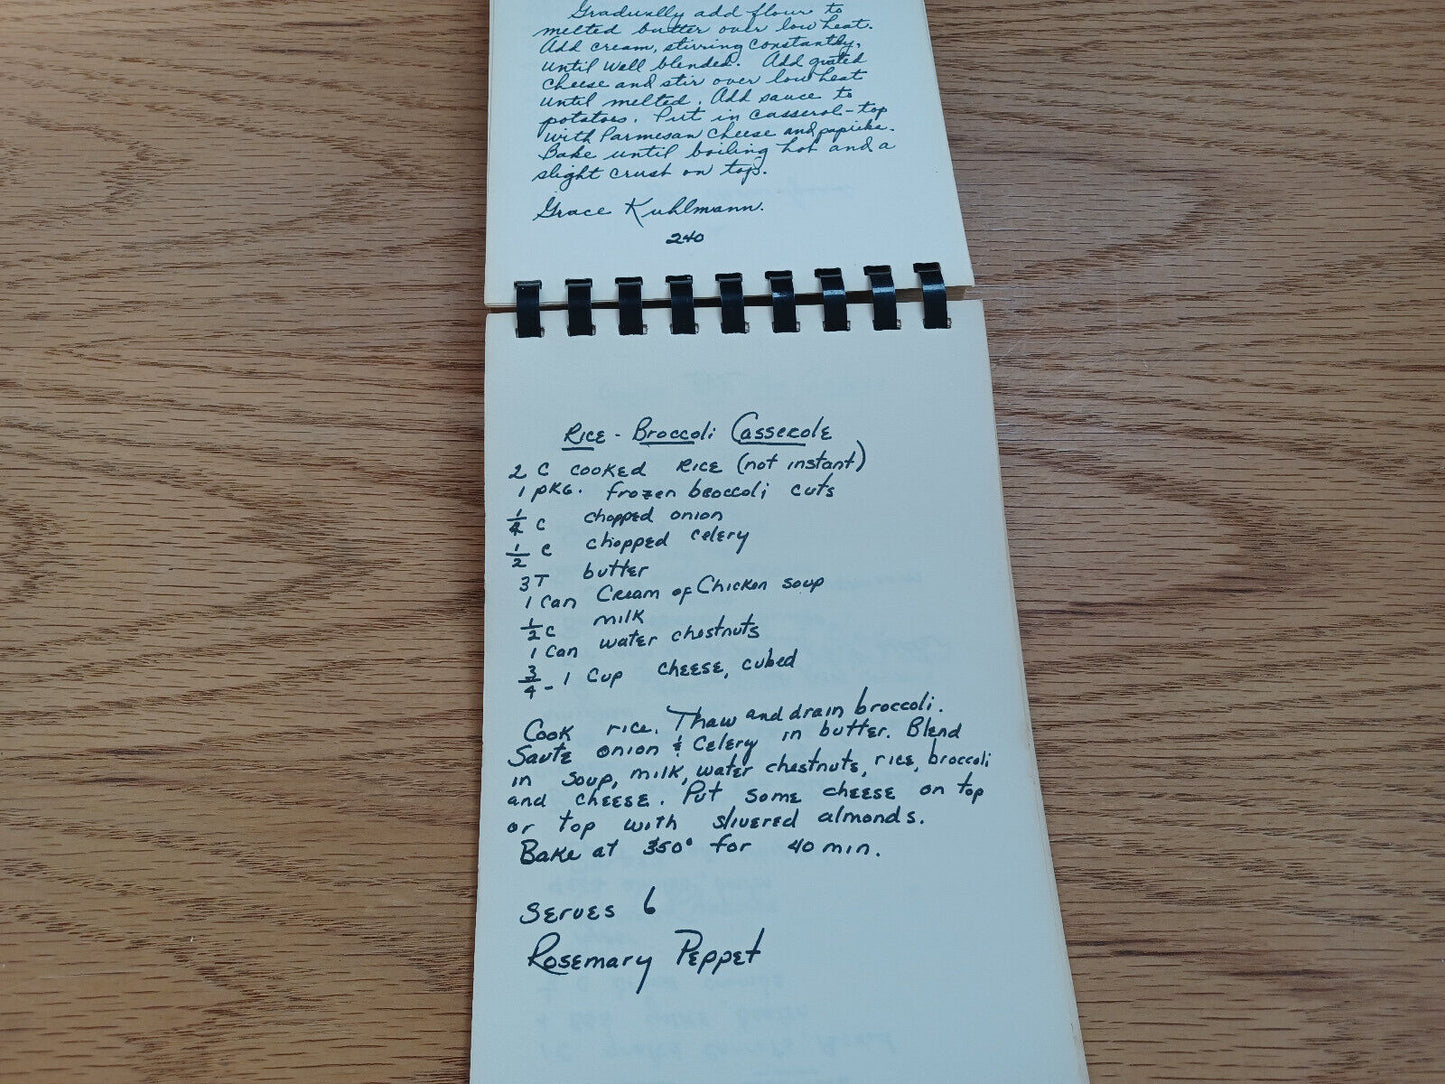 Gradually add flour to
melted butter over low heat.
Add cream, stirring constantly,
until well blended. Add grated
cheese and stir over low heat
until melted. Add sauce to
potatoes. Put in casserol-top
with Parmesan cheese and papicka.
Bake until boiling hot and a
slight crust on top.
Grace Kuhlmann.
240
Rice - Broccoli Casserole
2 C cooked rice (not instant)
1 pkg. frozen broccoli cuts
1/4 C chopped onion
1/2 C chopped celery
3 T butter
1 can Cream of Chicken soup
1/2 C milk
1 can water chestnuts
3/4 - 1 cup cheese, cubed
Cook rice. Thaw and drain broccoli.
Saute onion & celery in butter. Blend
in soup, milk, water chestnuts, rice, broccoli
and cheese. Put some cheese on top
or top with slivered almonds.
Bake at 350° for 40 min.
Serves 6
Rosemary Peppet